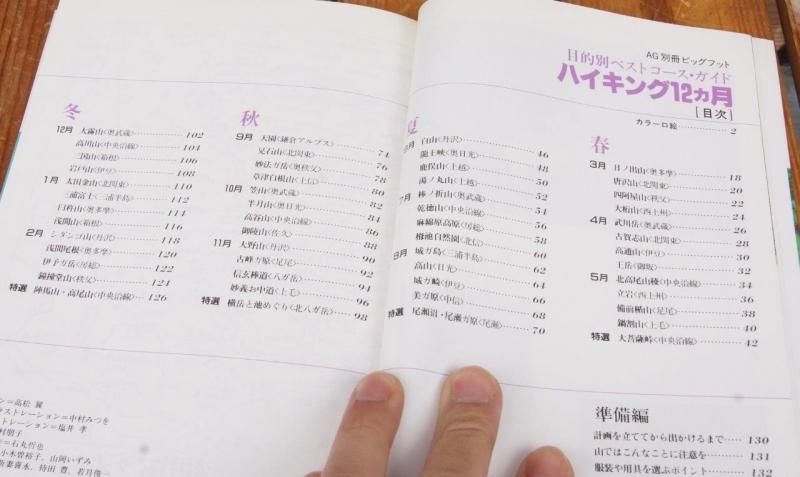 AG別冊ビッグフット
目的別ベストコース・ガイド
ハイキング12ヵ月
[目次]
カラー口絵…………2
春
3月 日ノ出山〈奥多摩〉…………18
唐沢山〈北関東〉…………20
四阿屋山〈秩父〉…………22
大桁山〈西上州〉…………24
4月 武川岳〈奥武蔵〉…………26
古賀志山〈北関東〉…………28
高通山〈伊豆〉…………30
王岳〈御坂〉…………32
5月 北高尾山稜〈中央沿線〉…………34
立岩〈西上州〉…………36
備前楯山〈足尾〉…………38
鍋割山〈上毛〉…………40
特選 大菩薩峠〈中央沿線〉…………42
夏
白山〈丹沢〉…………46
龍王峡〈奥日光〉…………48
鹿俣山〈上越〉…………50
湯ノ丸山〈上越〉…………52
7月 棒ノ折山〈奥武蔵〉…………54
乾徳山〈中央沿線〉…………54
麻綿原高原〈房総〉…………58
栂池自然園〈北信〉…………60
8月 城ガ島〈三浦半島〉…………62
高山〈日光〉…………62
城ガ崎〈伊豆〉…………66
美ガ原〈中信〉…………68
特選 尾瀬沼・尾瀬ガ原〈尾瀬〉…………70
秋
9月 天園〈鎌倉アルプス〉…………74
足石山〈北関東〉…………76
妙法ガ岳〈奥秩父〉…………78
草津白根山〈上信〉…………80
10月 笠山〈奥武蔵〉…………82
半月山〈奥日光〉…………84
高谷山〈中央沿線〉…………86
御陵山〈佐久〉…………88
11月 大野山〈丹沢〉…………90
古峰ガ原〈足尾〉…………92
信玄棒道〈八ガ岳〉…………94
妙義お中道〈上毛〉…………96
特選 横岳と池めぐり〈北八ガ岳〉…………98
冬
12月 大霧山〈奥武蔵〉…………102
高川山〈中央沿線〉…………104
三国山〈箱根〉…………106
岩戸山〈伊豆〉…………108
1月 太田金山〈北関東〉…………110
三浦富士〈三浦半島〉…………112
臼杵山〈奥多摩〉…………114
浅間山〈箱根〉…………116
2月 シダンゴ山〈丹沢〉…………118
浅間尾根〈奥多摩〉…………120
伊予ガ岳〈房総〉…………122
鐘撞堂山〈秩父〉…………124
特選 陣馬山・高尾山〈中央沿線〉…………126
準備編
計画を立ててから出かけるまで……130
山ではこんなことに注意を…………131
服装や用具を選ぶポイント…………132
ン＝高松 耀
ラストレーション＝中村みつを
トレーション＝塩井 孝
村朋子
＝石丸哲也
小木曽裕子, 山岡いずみ
吾妻喜永, 持田 豊, 若月俊一